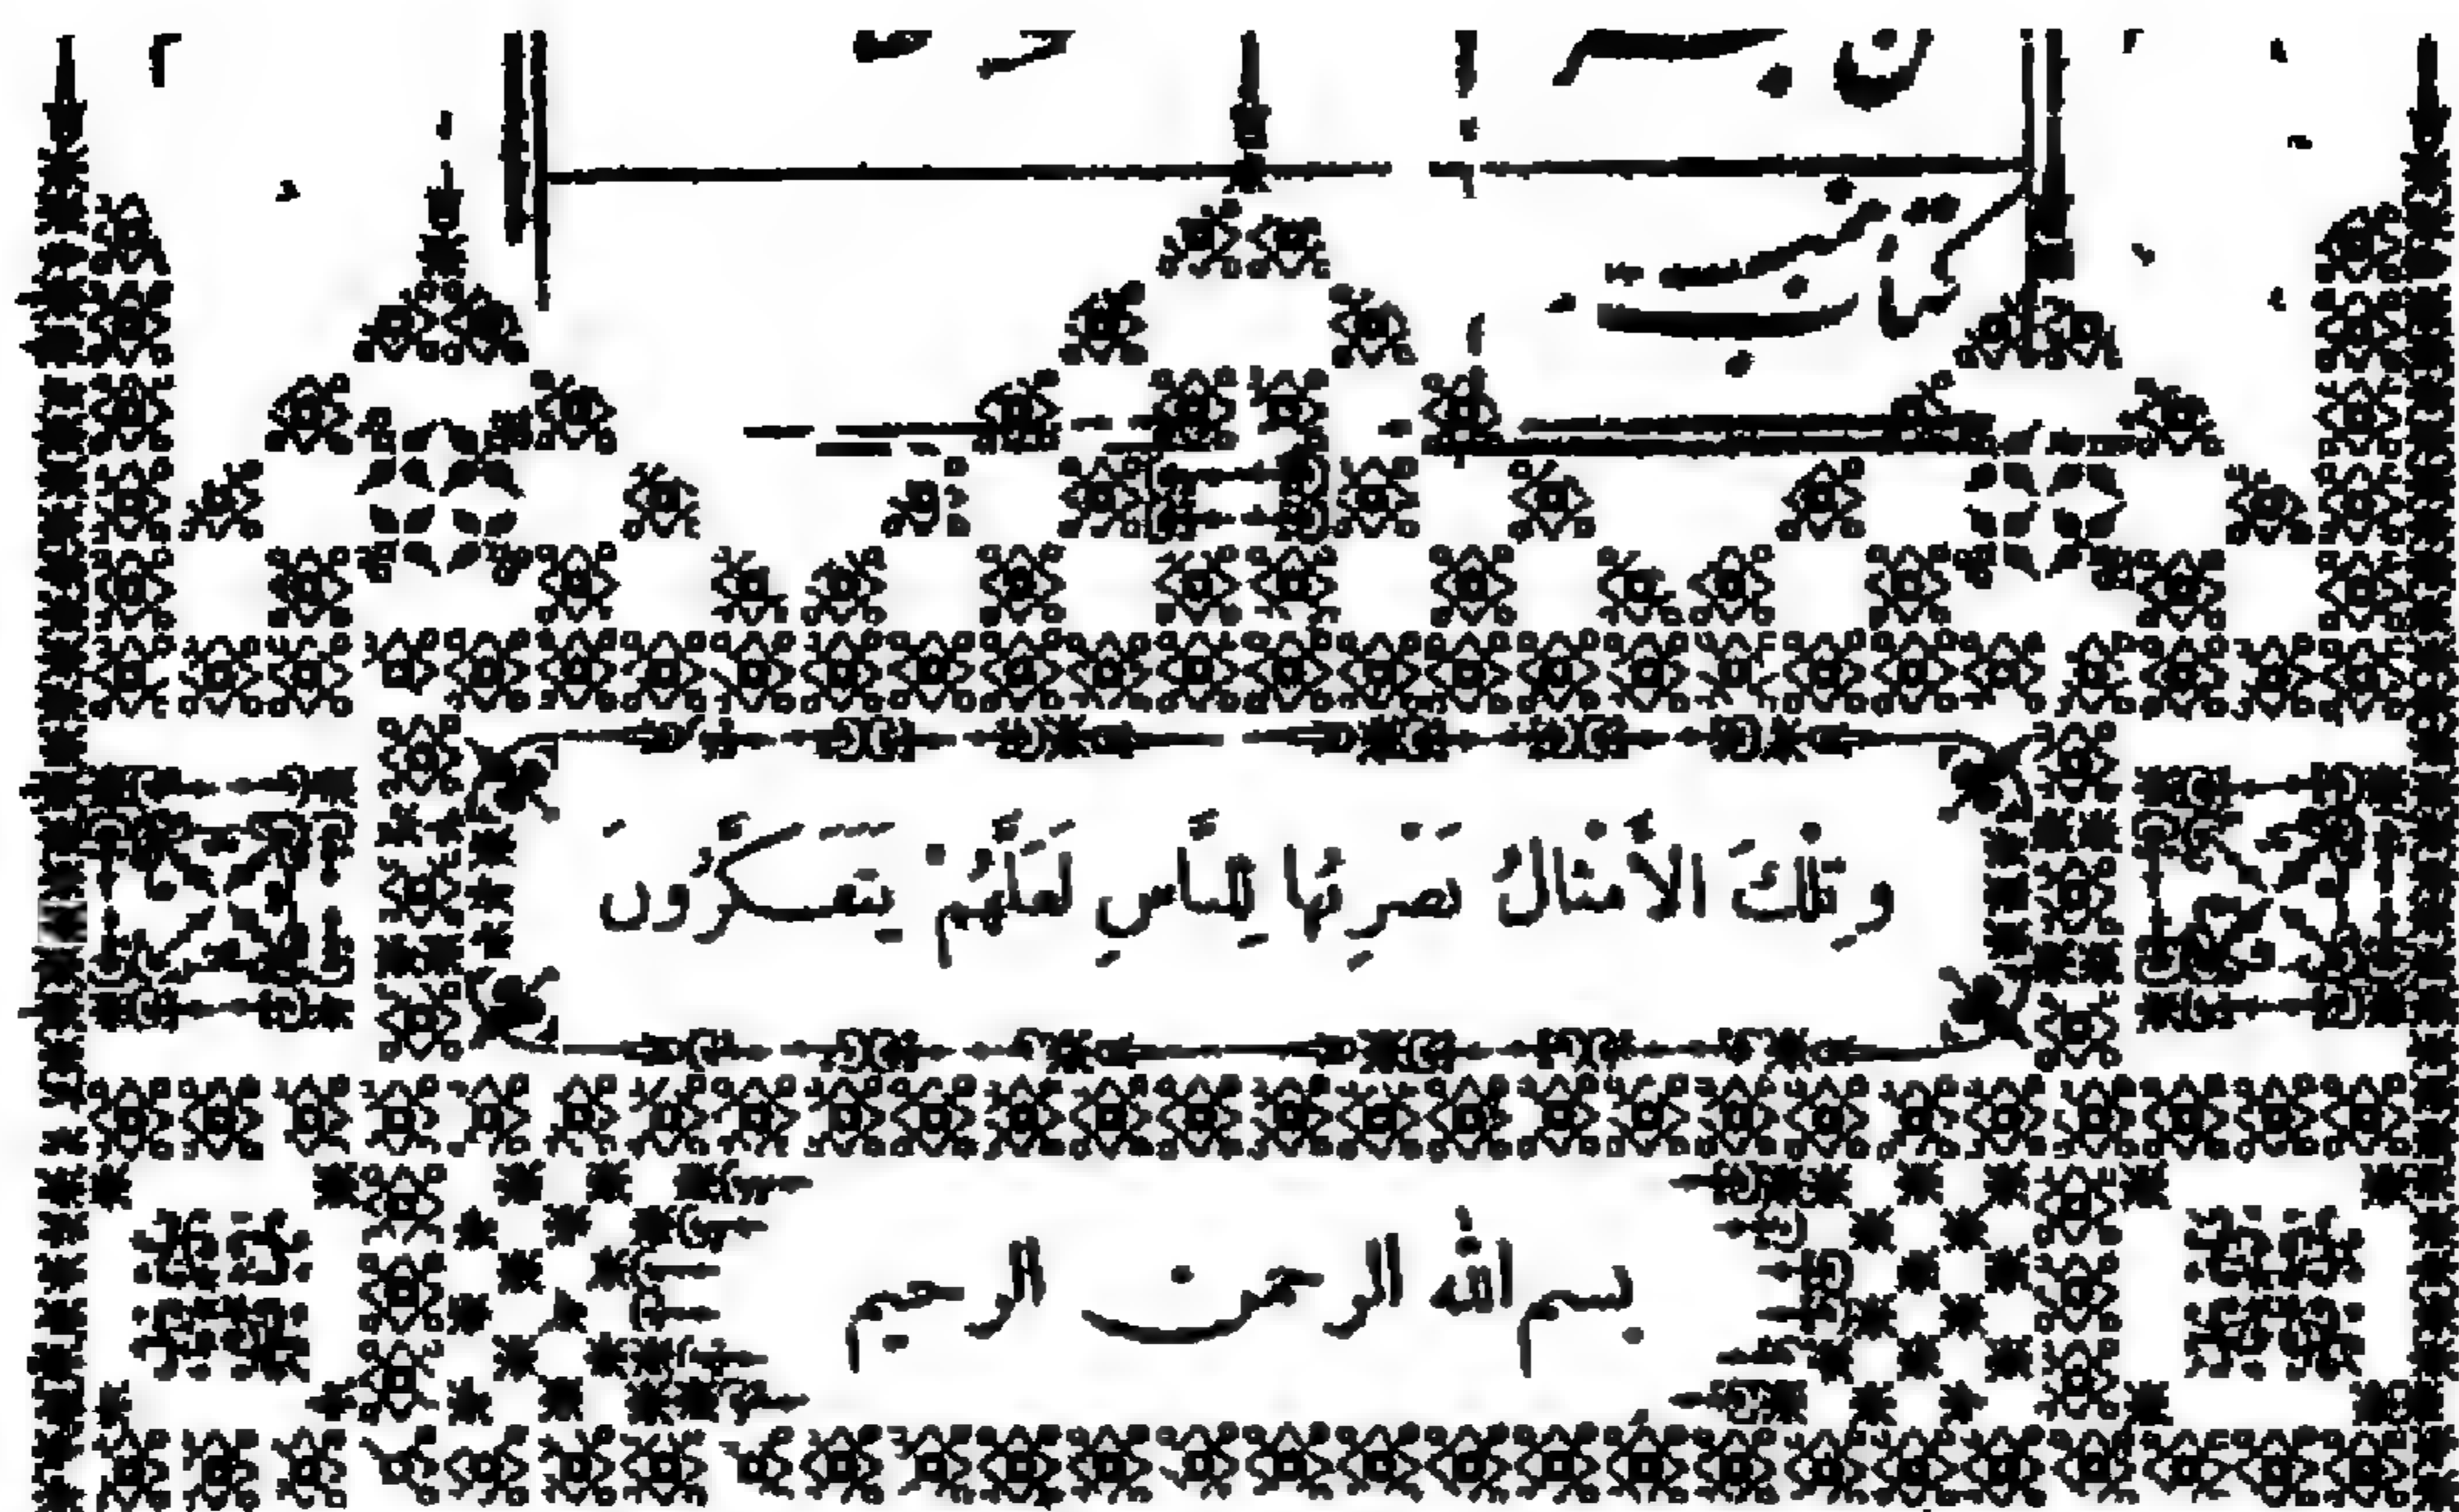 وتِلْكَ الأَمْثالُ نَضْرِبُها لِلنَّاسِ لَعَلَّهُمْ يَتَفَكَّرُونَ
بسم الله الرحمن الرحيم